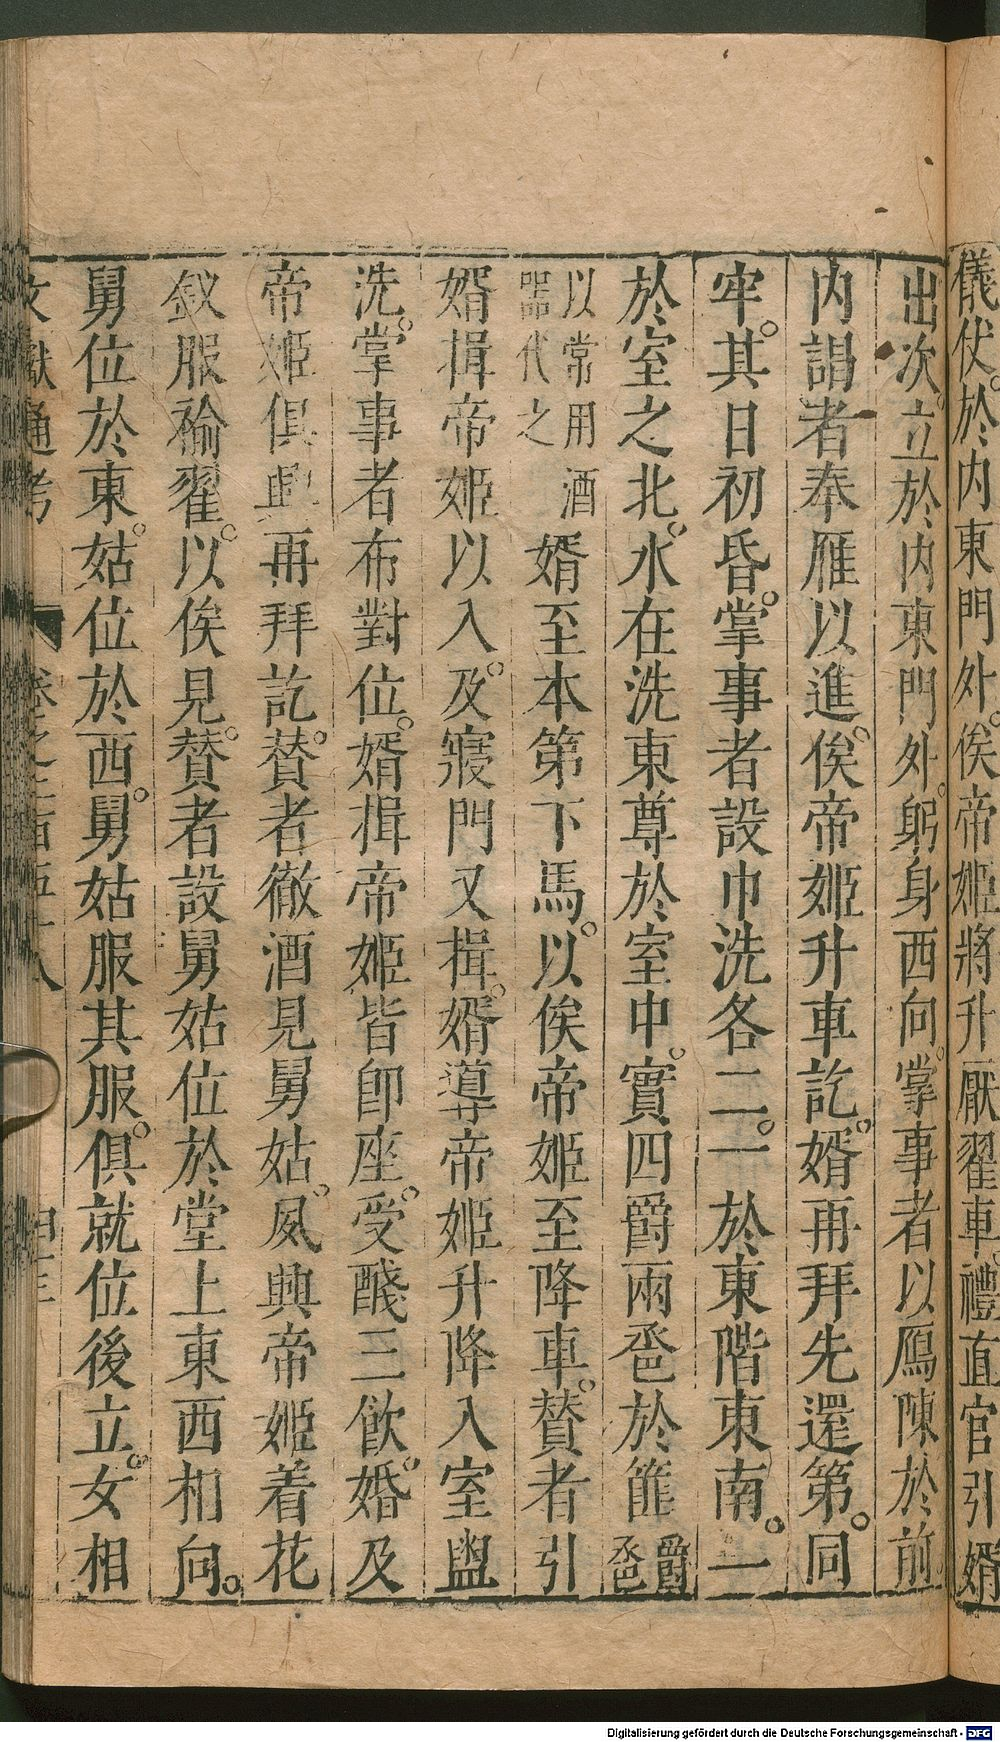 儀仗。於内東門外。俟帝姬將升厭翟車。禮直官引婿
出次。立於内東門外。躬身西向。掌事者以鴈陳於前
内謁者奉雁以進。俟帝姬升車訖。婿再拜先還第。同
牢。其日初昏。掌事者設巾洗各二。一於東階東南。一
於室之北。水在洗東尊於室中。實四爵兩卺於篚爵卺
以常用酒器代之婿至本第下馬。以俟帝姬至降車。贊者引
婿揖帝姬以入。及寢門又揖。婿導帝姬升降入室盥
洗。掌事者布對位。婿揖帝姬皆卽座。受醆三飲。婚及
帝姬俱興再拜訖。贊者徹酒見舅姑。夙興帝姬着花
釵服褕翟。以俟見。贊者設舅姑位於堂上東西相向。
舅位於東。姑位於西。舅姑服其服。俱就位後立。女相
文獻通考 卷之二百五十八
Digitalisierung gefördert durch die Deutsche Forschungsgemeinschaft - DFG